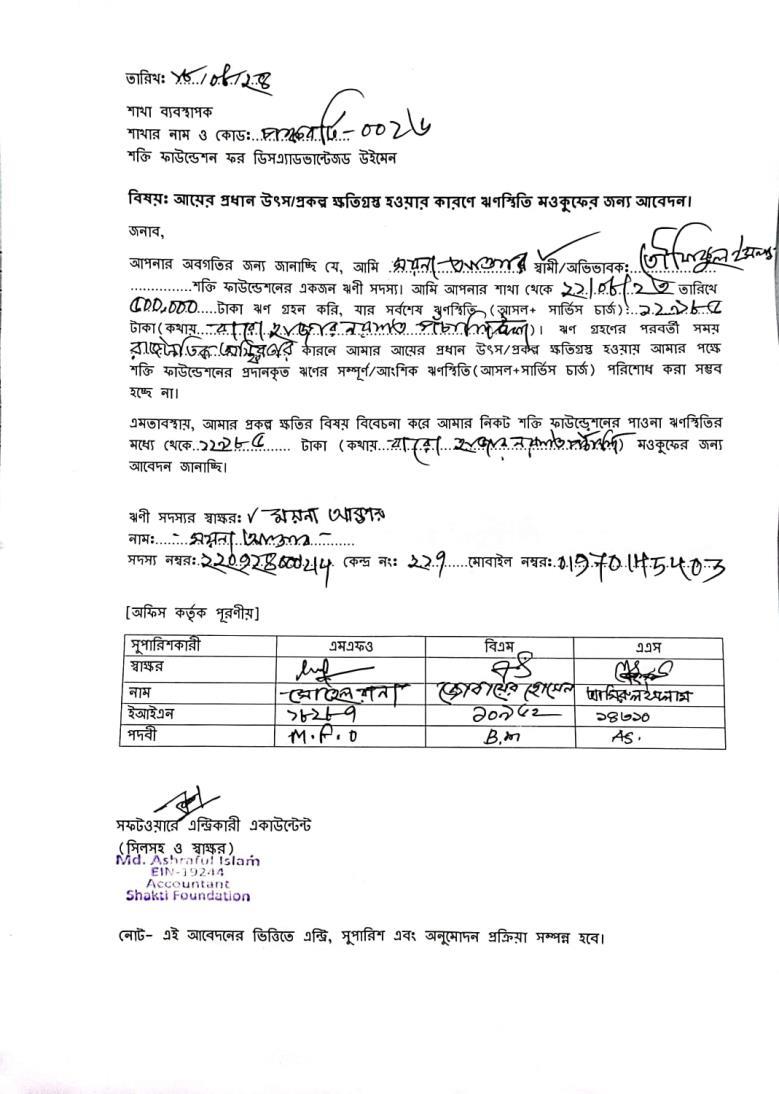 তারিখ:
শাখা ব্যবস্থাপক
শাখার নাম ও কোড: - 002৬
শক্তি ফাউন্ডেশন ফর ডিসএ্যাডভান্টেজড উইমেন
বিষয়ঃ আয়ের প্রধান উৎস/প্রকল্প ক্ষতিগ্রস্থ হওয়ার কারণে ঋণস্থিতি মওকুফের জন্য আবেদন।
জনাব,
আপনার অবগতির জন্য জানাচ্ছি যে, আমি ময়না আক্তার স্বামী/অভিভাবক:
শক্তি ফাউন্ডেশনের একজন ঋণী সদস্য। আমি আপনার শাখা থেকে তারিখে
টাকা ঋণ গ্রহন করি, যার সর্বশেষ ঋণস্থিতি (আসল+ সার্ভিস চার্জ):
টাকা(কথায় বারো হাজার নয়শত )। ঋণ গ্রহণের পরবর্তী সময়
রাজনৈতিক অস্থিরতার কারনে আমার আয়ের প্রধান উৎস/প্রকল্প ক্ষতিগ্রস্থ হওয়ায় আমার পক্ষে
শক্তি ফাউন্ডেশনের প্রদানকৃত ঋণের সম্পূর্ণ/আংশিক ঋণস্থিতি(আসল+সার্ভিস চার্জ) পরিশোধ করা সম্ভব
হচ্ছে না।
এমতাবস্থায়, আমার প্রকল্প ক্ষতির বিষয় বিবেচনা করে আমার নিকট শক্তি ফাউন্ডেশনের পাওনা ঋণস্থিতির
মধ্যে থেকে টাকা (কথায় বারো হাজার নয়শত ) মওকুফের জন্য
আবেদন জানাচ্ছি।
ঋণী সদস্যর স্বাক্ষর: ময়না আক্তার
নাম: ময়না আক্তার
সদস্য নম্বর: কেন্দ্র নং: মোবাইল নম্বর: 01970145403
[অফিস কর্তৃক পূরণীয়]
সুপারিশকারী এমএফও বিএম এএস
স্বাক্ষর
নাম সোহেল রানা জোবায়ের হোসেন
ইআইএন ১৮২৮৭ ১৪৬১০
পদবী M.F.O B.M AS.
সফটওয়্যারে এন্ট্রিকারী একাউন্টেন্ট
(সিলসহ ও স্বাক্ষর)
Md. Ashraful Islam
EIN-19244
Accountant
Shakti Foundation
নোট- এই আবেদনের ভিত্তিতে এন্ট্রি, সুপারিশ এবং অনুমোদন প্রক্রিয়া সম্পন্ন হবে।